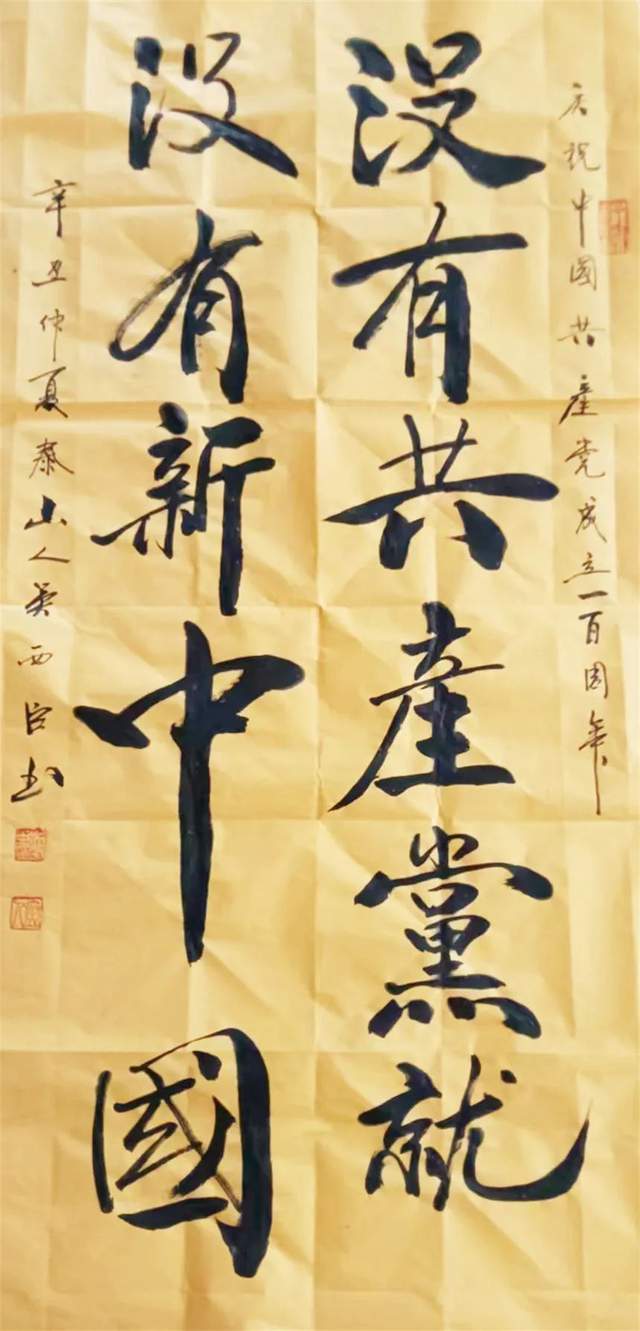 庆祝中國共產党成立一百周年
没有共產黨就
没有新中國
辛丑仲夏泰山人吴西臣书